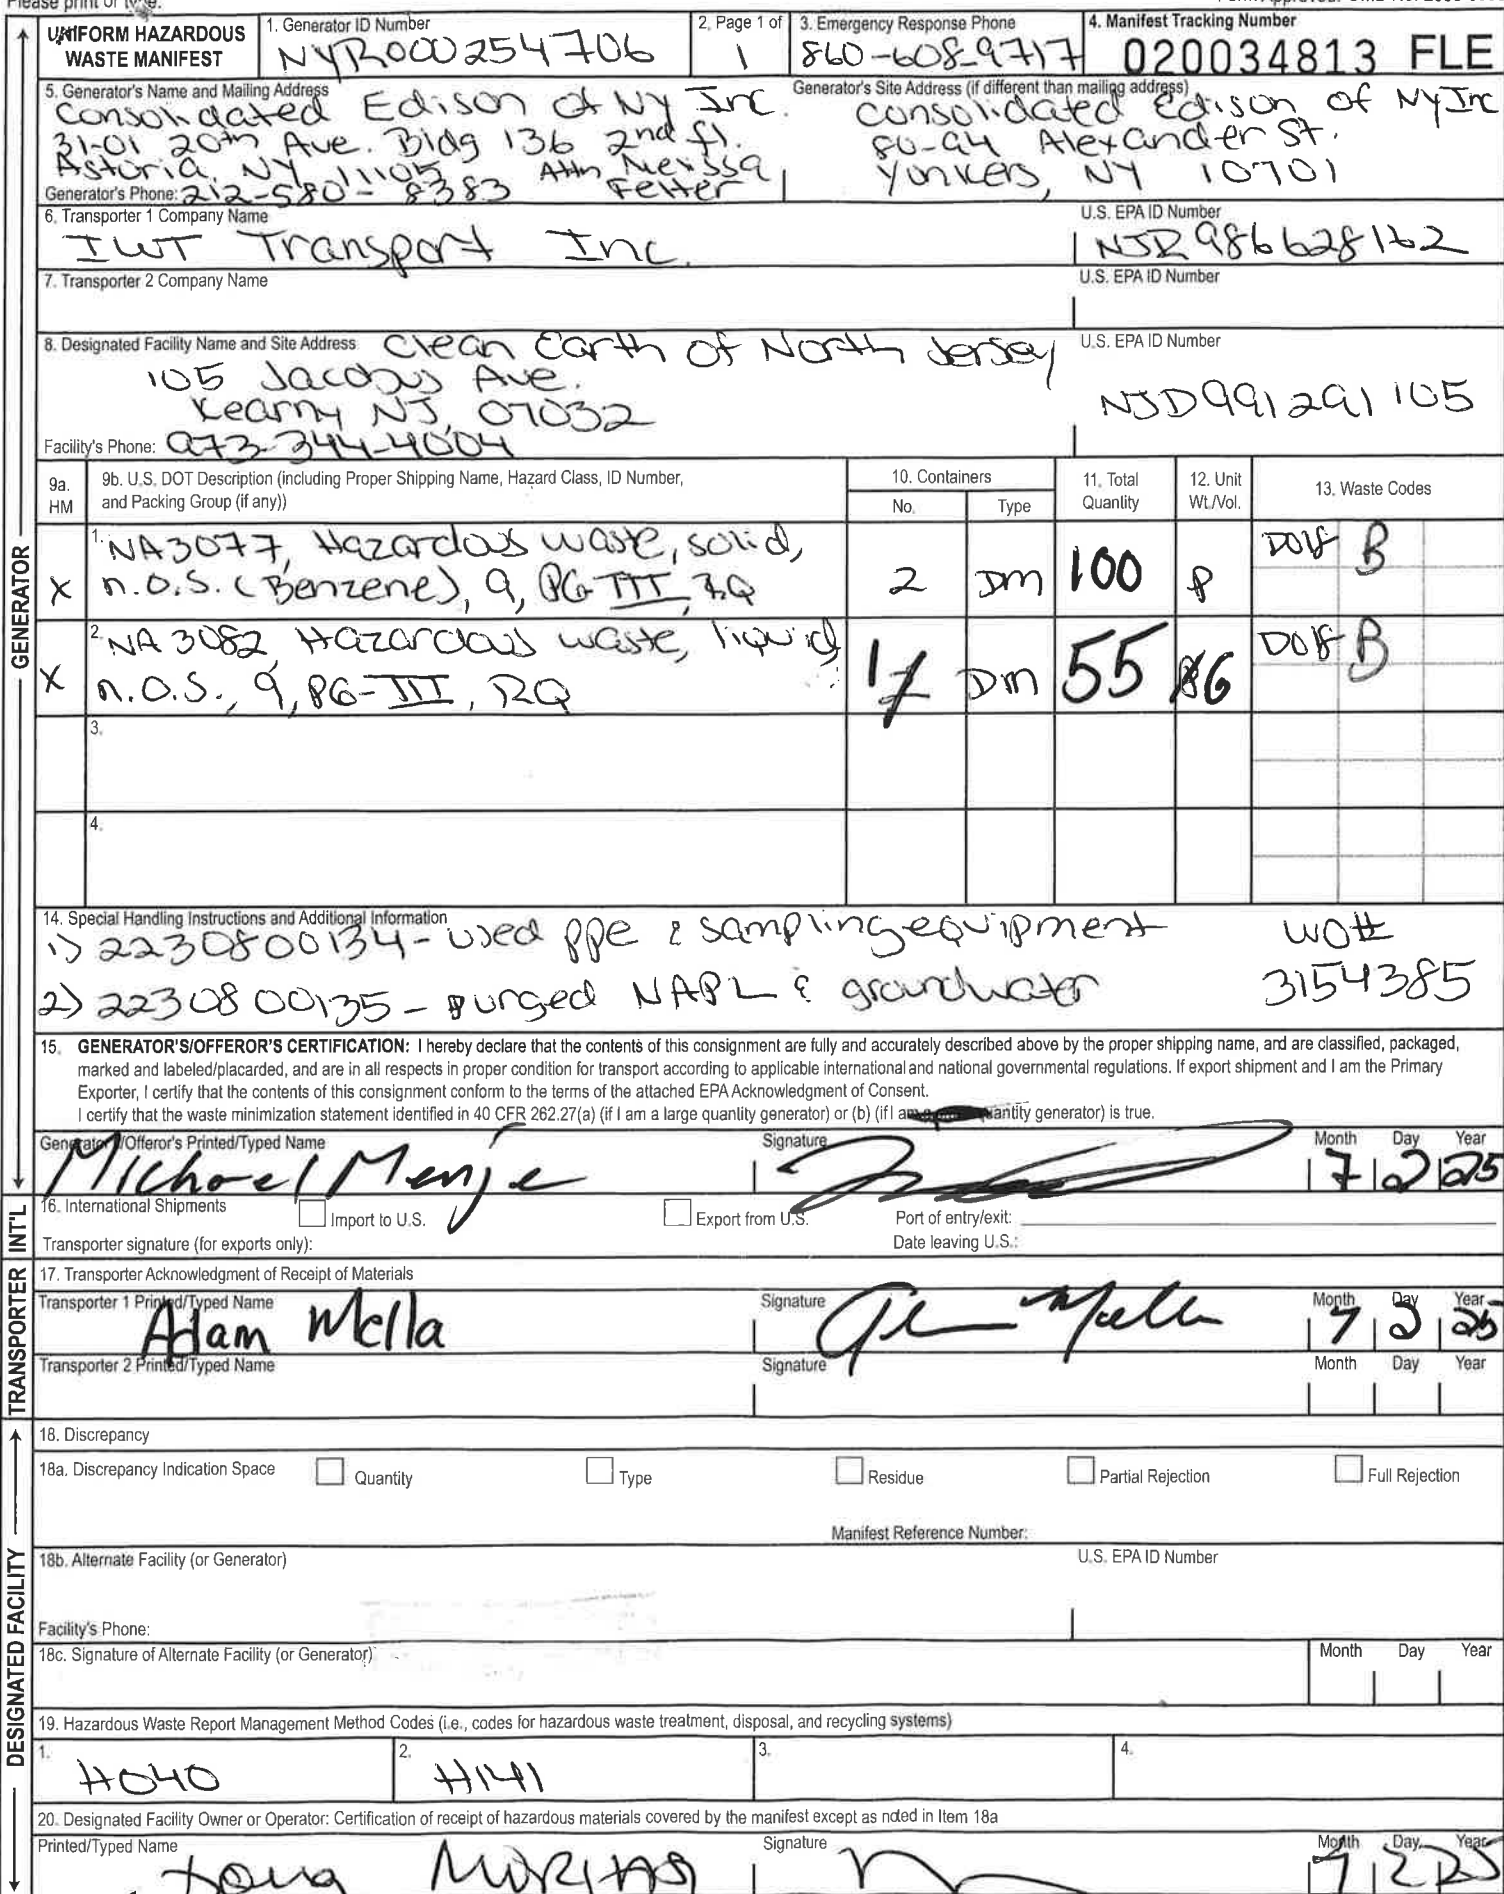 Please print or type.
UNIFORM HAZARDOUS WASTE MANIFEST
1. Generator ID Number
NYR000254706
2. Page 1 of
1
3. Emergency Response Phone
860-608-9717
4. Manifest Tracking Number
020034813 FLE
5. Generator's Name and Mailing Address
Consolidated Edison of NY Inc.
31-01 20th Ave. Bldg 136 2nd fl.
Astoria, NY 11105 Attn Melissa Fetter
Generator's Phone: 212-580-8383
Generator's Site Address (if different than mailing address)
Consolidated Edison of NY Inc
80-94 Alexander St.
Yonkers, NY 10701
6. Transporter 1 Company Name
IWT Transport Inc.
U.S. EPA ID Number
NJR986628162
7. Transporter 2 Company Name
U.S. EPA ID Number
8. Designated Facility Name and Site Address Clean Earth of North Jersey
105 Jacobus Ave.
Kearny NJ, 07032
Facility's Phone: 973-344-4004
U.S. EPA ID Number
NJD991291105
9a. HM
9b. U.S. DOT Description (including Proper Shipping Name, Hazard Class, ID Number,
and Packing Group (if any))
10. Containers
No.
Type
11. Total Quantity
12. Unit Wt./Vol.
13. Waste Codes
X
1. NA3077, Hazardous waste, solid,
n.o.s. (Benzene), 9, PG-III, RQ
2 Dm 100 P D018 B
X
2. NA3082, Hazardous waste, liquid,
n.o.s., 9, PG-III, RQ
1 Dm 55 G D018 B
3.
4.
14. Special Handling Instructions and Additional Information
1) 2230800134 - used ppe & sampling equipment
2) 2230800135 - purged NAPL & groundwater
WO#
3154385
15. GENERATOR'S/OFFEROR'S CERTIFICATION: I hereby declare that the contents of this consignment are fully and accurately described above by the proper shipping name, and are classified, packaged,
marked and labeled/placarded, and are in all respects in proper condition for transport according to applicable international and national governmental regulations. If export shipment and I am the Primary
Exporter, I certify that the contents of this consignment conform to the terms of the attached EPA Acknowledgment of Consent.
I certify that the waste minimization statement identified in 40 CFR 262.27(a) (if I am a large quantity generator) or (b) (if I am a quantity generator) is true.
Generator's/Offeror's Printed/Typed Name
Michael Menje
Signature
Month Day Year
7 2 25
16. International Shipments
Import to U.S.
Export from U.S.
Port of entry/exit:
Transporter signature (for exports only):
Date leaving U.S.:
17. Transporter Acknowledgment of Receipt of Materials
Transporter 1 Printed/Typed Name
Adam Mella
Signature
Month Day Year
7 2 25
Transporter 2 Printed/Typed Name
Signature
Month Day Year
18. Discrepancy
18a. Discrepancy Indication Space
Quantity
Type
Residue
Partial Rejection
Full Rejection
Manifest Reference Number:
18b. Alternate Facility (or Generator)
U.S. EPA ID Number
Facility's Phone:
18c. Signature of Alternate Facility (or Generator)
Month Day Year
19. Hazardous Waste Report Management Method Codes (i.e., codes for hazardous waste treatment, disposal, and recycling systems)
1. H040
2. H141
3.
4.
20. Designated Facility Owner or Operator: Certification of receipt of hazardous materials covered by the manifest except as noted in Item 18a
Printed/Typed Name
Signature
Month Day Year
7 2 25
GENERATOR
INT'L
TRANSPORTER
DESIGNATED FACILITY